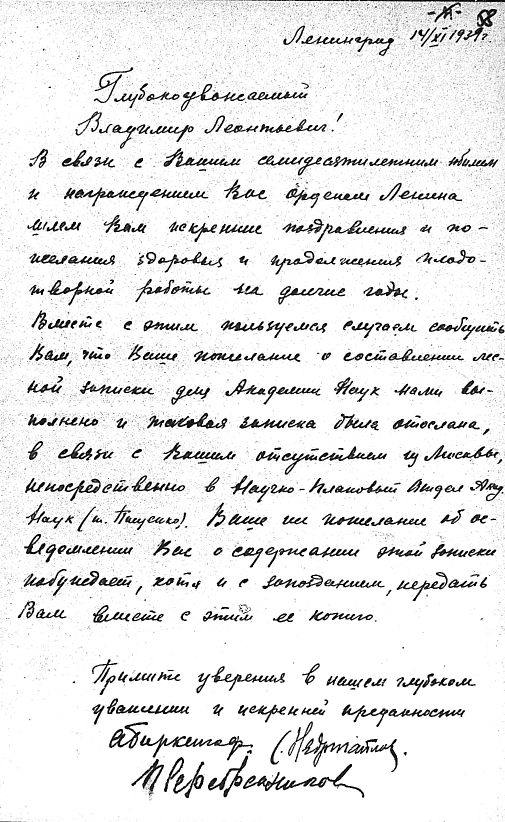 58
Ленинград 14/XI 1939 г.
Глубокоуважаемый
Владимир Леонтьевич!
В связи с Вашим семидесятилетним юбилеем
и награждением Вас орденом Ленина
шлем Вам искренние поздравления и по-
желания здоровья и продолжения плодо-
творной работы на долгие годы.
Вместе с этим пользуемся случаем сообщить
Вам, что Ваше пожелание о составлении лес-
ной записки для Академии Наук нами вы-
полнено и таковая записка была отослана,
в связи с Вашим отсутствием из Москвы,
непосредственно в Научно-Плановый Отдел Акад.
Наук (т. Пащенко). Ваше же пожелание об ос-
ведомлении Вас о содержании этой записки
побуждает, хотя и с запозданием, передать
Вам вместе с этим ее копию.
Примите уверения в нашем глубоком
уважении и искренней преданности